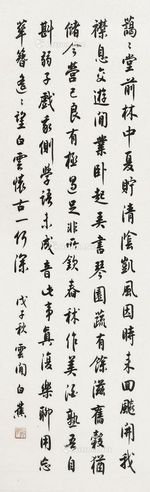 藹〻堂前林中夏貯清陰凱風因時來回飆開我
襟息交遊閒業臥起弄書琴園蔬有餘滋舊穀猶
儲今營己良有極過足非所欽舂秫作美酒熟吾自
斟弱子戲我側學語未成音此事真復樂聊用忘
華簪遙〻望白雲懷古一何深 戊子秋雲間白蕉